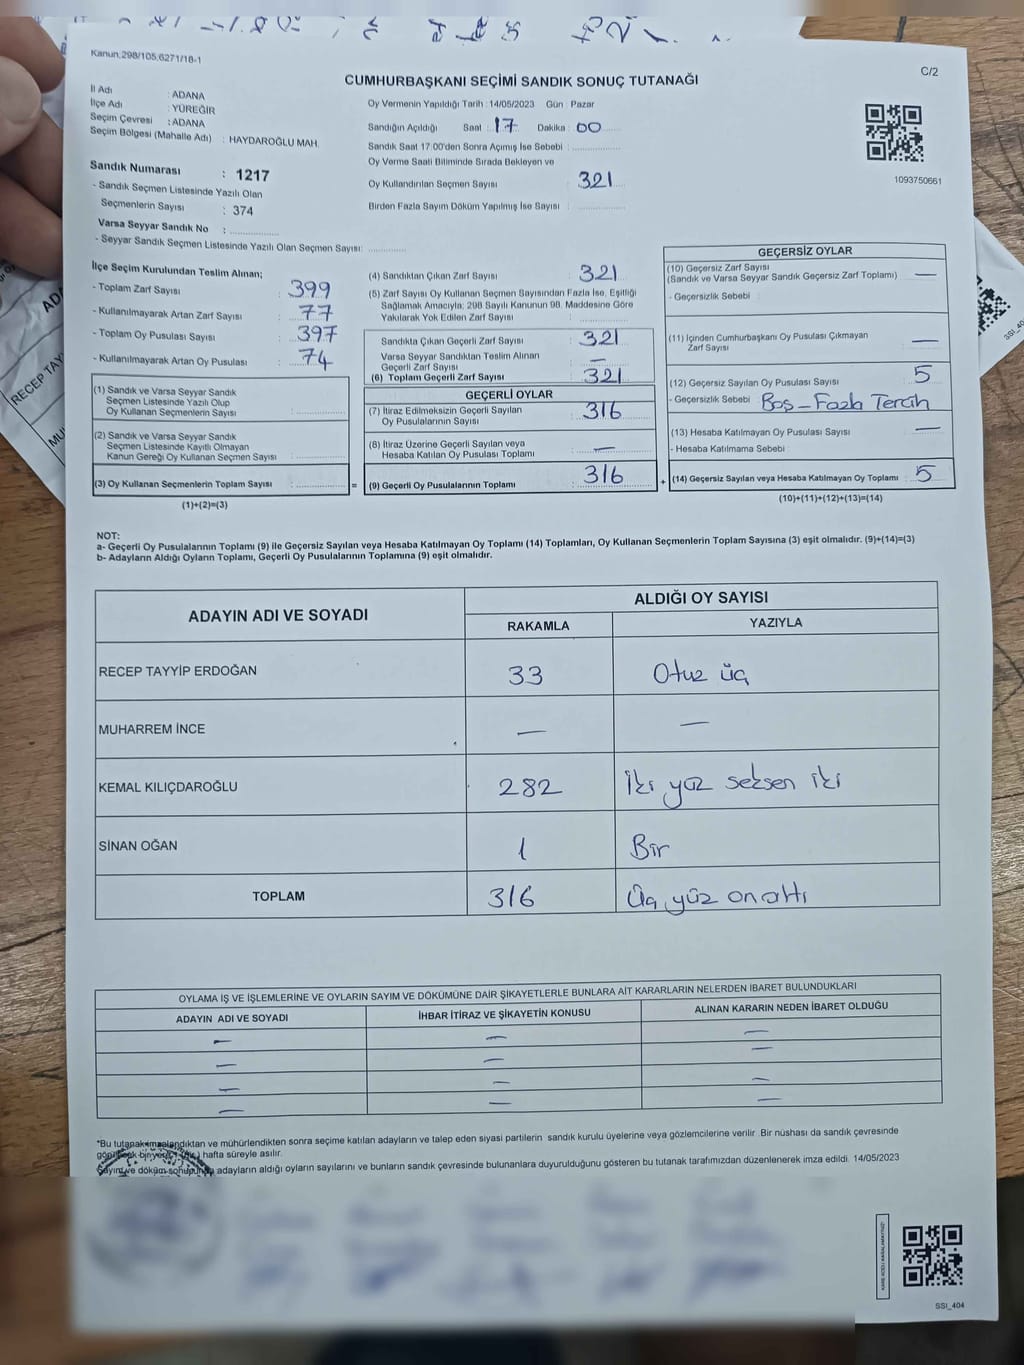 Kanun:298/105;6271/18-1
C/2
CUMHURBAŞKANI SEÇİMİ SANDIK SONUÇ TUTANAĞI
İl Adı : ADANA
İlçe Adı : YÜREĞİR
Seçim Çevresi : ADANA
Seçim Bölgesi (Mahalle Adı) : HAYDAROĞLU MAH.
Oy Vermenin Yapıldığı Tarih : 14/05/2023 Gün : Pazar
Sandığın Açıldığı Saat : 17 Dakika : 00
Sandık Saat 17:00'den Sonra Açımış İse Sebebi :
Oy Verme Saati Bitiminde Sırada Bekleyen ve
Oy Kullandırılan Seçmen Sayısı : 321
Birden Fazla Sayım Döküm Yapılmış İse Sayısı :
1093750661
Sandık Numarası : 1217
- Sandık Seçmen Listesinde Yazılı Olan
Seçmenlerin Sayısı : 374
Varsa Seyyar Sandık No :
- Seyyar Sandık Seçmen Listesinde Yazılı Olan Seçmen Sayısı:
İlçe Seçim Kurulundan Teslim Alınan;
- Toplam Zarf Sayısı : 399
- Kullanılmayarak Artan Zarf Sayısı : 77
- Toplam Oy Pusulası Sayısı : 397
- Kullanılmayarak Artan Oy Pusulası : 74
(1) Sandık ve Varsa Seyyar Sandık
Seçmen Listesinde Yazılı Olup
Oy Kullanan Seçmenlerin Sayısı :
(2) Sandık ve Varsa Seyyar Sandık
Seçmen Listesinde Kayıtlı Olmayan
Kanun Gereği Oy Kullanan Seçmen Sayısı :
(3) Oy Kullanan Seçmenlerin Toplam Sayısı : =
(1)+(2)=(3)
(4) Sandıktan Çıkan Zarf Sayısı : 321
(5) Zarf Sayısı Oy Kullanan Seçmen Sayısından Fazla İse, Eşitliği
Sağlamak Amacıyla; 298 Sayılı Kanunun 98. Maddesine Göre
Yakılarak Yok Edilen Zarf Sayısı :
Sandıkta Çıkan Geçerli Zarf Sayısı : 321
Varsa Seyyar Sandıktan Teslim Alınan
Geçerli Zarf Sayısı : —
(6) Toplam Geçerli Zarf Sayısı : 321
GEÇERLİ OYLAR
(7) İtiraz Edilmeksizin Geçerli Sayılan
Oy Pusulalarının Sayısı : 316
(8) İtiraz Üzerine Geçerli Sayılan veya
Hesaba Katılan Oy Pusulası Toplamı : —
(9) Geçerli Oy Pusulalarının Toplamı : 316 +
GEÇERSİZ OYLAR
(10) Geçersiz Zarf Sayısı
(Sandık ve Varsa Seyyar Sandık Geçersiz Zarf Toplamı) : —
- Geçersizlik Sebebi :
(11) İçinden Cumhurbaşkanı Oy Pusulası Çıkmayan
Zarf Sayısı : —
(12) Geçersiz Sayılan Oy Pusulası Sayısı : 5
- Geçersizlik Sebebi : Boş - Fazla Tercih
(13) Hesaba Katılmayan Oy Pusulası Sayısı : —
- Hesaba Katılmama Sebebi :
(14) Geçersiz Sayılan veya Hesaba Katılmayan Oy Toplamı : 5
(10)+(11)+(12)+(13)=(14)
NOT:
a- Geçerli Oy Pusulalarının Toplamı (9) ile Geçersiz Sayılan veya Hesaba Katılmayan Oy Toplamı (14) Toplamları, Oy Kullanan Seçmenlerin Toplam Sayısına (3) eşit olmalıdır. (9)+(14)=(3)
b- Adayların Aldığı Oyların Toplamı, Geçerli Oy Pusulalarının Toplamına (9) eşit olmalıdır.
ADAYIN ADI VE SOYADI
ALDIĞI OY SAYISI
RAKAMLA YAZIYLA
RECEP TAYYİP ERDOĞAN 33 Otuz üç
MUHARREM İNCE — —
KEMAL KILIÇDAROĞLU 282 İki yüz seksen iki
SİNAN OĞAN 1 Bir
TOPLAM 316 Üç yüz on altı
OYLAMA İŞ VE İŞLEMLERİNE VE OYLARIN SAYIM VE DÖKÜMÜNE DAİR ŞİKAYETLERLE BUNLARA AİT KARARLARIN NELERDEN İBARET BULUNDUKLARI
ADAYIN ADI VE SOYADI İHBAR İTİRAZ VE ŞİKAYETİN KONUSU ALINAN KARARIN NEDEN İBARET OLDUĞU
— — —
— — —
— — —
— — —
*Bu tutanak imzalandıktan ve mühürlendikten sonra seçime katılan adayların ve talep eden siyasi partilerin sandık kurulu üyelerine veya gözlemcilerine verilir. Bir nüshası da sandık çevresinde
hafta süreyle asılır.
Sayım ve döküm sonunda adayların aldığı oyların sayılarını ve bunların sandık çevresinde bulunanlara duyurulduğunu gösteren bu tutanak tarafımızdan düzenlenerek imza edildi. 14/05/2023
SSI_404
RECEP TAY